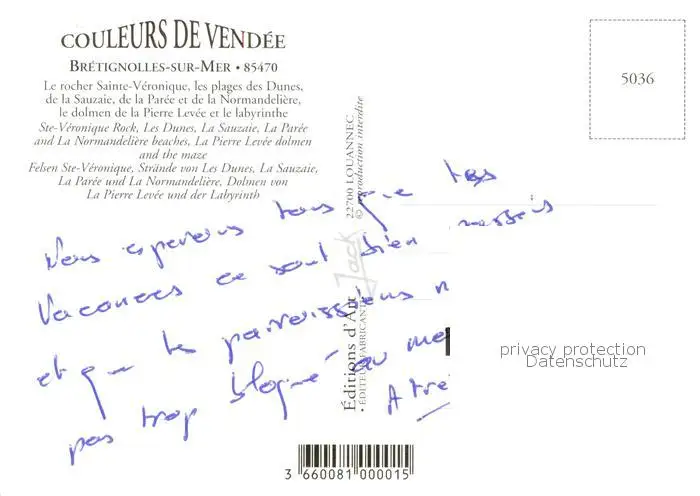 COULEURS DE VENDÉE
BRÉTIGNOLLES-SUR-MER • 85470
Le rocher Sainte-Véronique, les plages des Dunes,
de la Sauzaie, de la Parée et de la Normandelière,
le dolmen de la Pierre Levée et le labyrinthe
Ste-Véronique Rock, Les Dunes, La Sauzaie, La Parée
and La Normandelière beaches, La Pierre Levée dolmen
and the maze
Felsen Ste-Véronique, Strände von Les Dunes, La Sauzaie,
La Parée und La Normandelière, Dolmen von
La Pierre Levée und der Labyrinth
5036
22700 LOUANNEC
© reproduction interdite
Jack
Éditions d'Art
• ÉDITEUR FABRICANT
Nous esperons tous que tes
Vacances ce sont bien passés
et que le paroissiens n
pas trop bloqué au me
A tre
privacy protection
Datenschutz
3 660081 000015